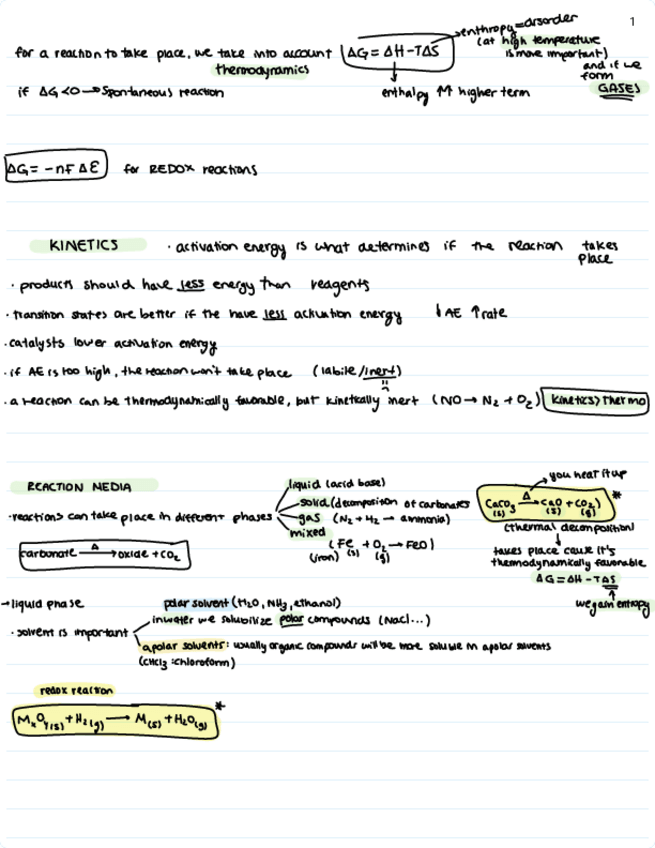 1
entropy=disorder
(at high temperature
is more important)
for a reaction to take place, we take into account ΔG = ΔH-TΔS
thermodynamics
and if we
form
GASES
if ΔG<0 → spontaneous reaction
enthalpy ↑↑ higher term
ΔG = -nF ΔE for REDOX reactions
KINETICS · activation energy is what determines if the reaction takes
place
· products should have less energy than reagents
· transition states are better if the have less activation energy ↓AE ↑rate
· catalysts lower activation energy
· if AE is too high, the reaction won't take place (labile/inert)
· a reaction can be thermodynamically favorable, but kinetically inert (NO → N₂ + O₂) Kinetics>thermo
REACTION MEDIA
· reactions can take place in different phases
liquid (acid base)
solid (decomposition of carbonates
gas (N₂ + H₂ → ammonia)
mixed
(Fe + O₂ → FeO)
(iron) (s) (g)
carbonate Δ→ oxide + CO₂
you heat it up
CaCO₃ Δ→ CaO + CO₂) *
(s) (s) (g)
(thermal decomposition)
takes place cause it's
thermodynamically favorable
ΔG = ΔH - TΔS
we gain entropy
→ liquid phase
· solvent is important
polar solvent (H₂O, NH₃, ethanol)
in water we solubilize polar compounds (NaCl...)
apolar solvents: usually organic compounds will be more soluble in apolar solvents
(CHCl₃ :chloroform)
redox reaction
MₓOᵧ(s) + H₂(g) → M(s) + H₂O(g) *